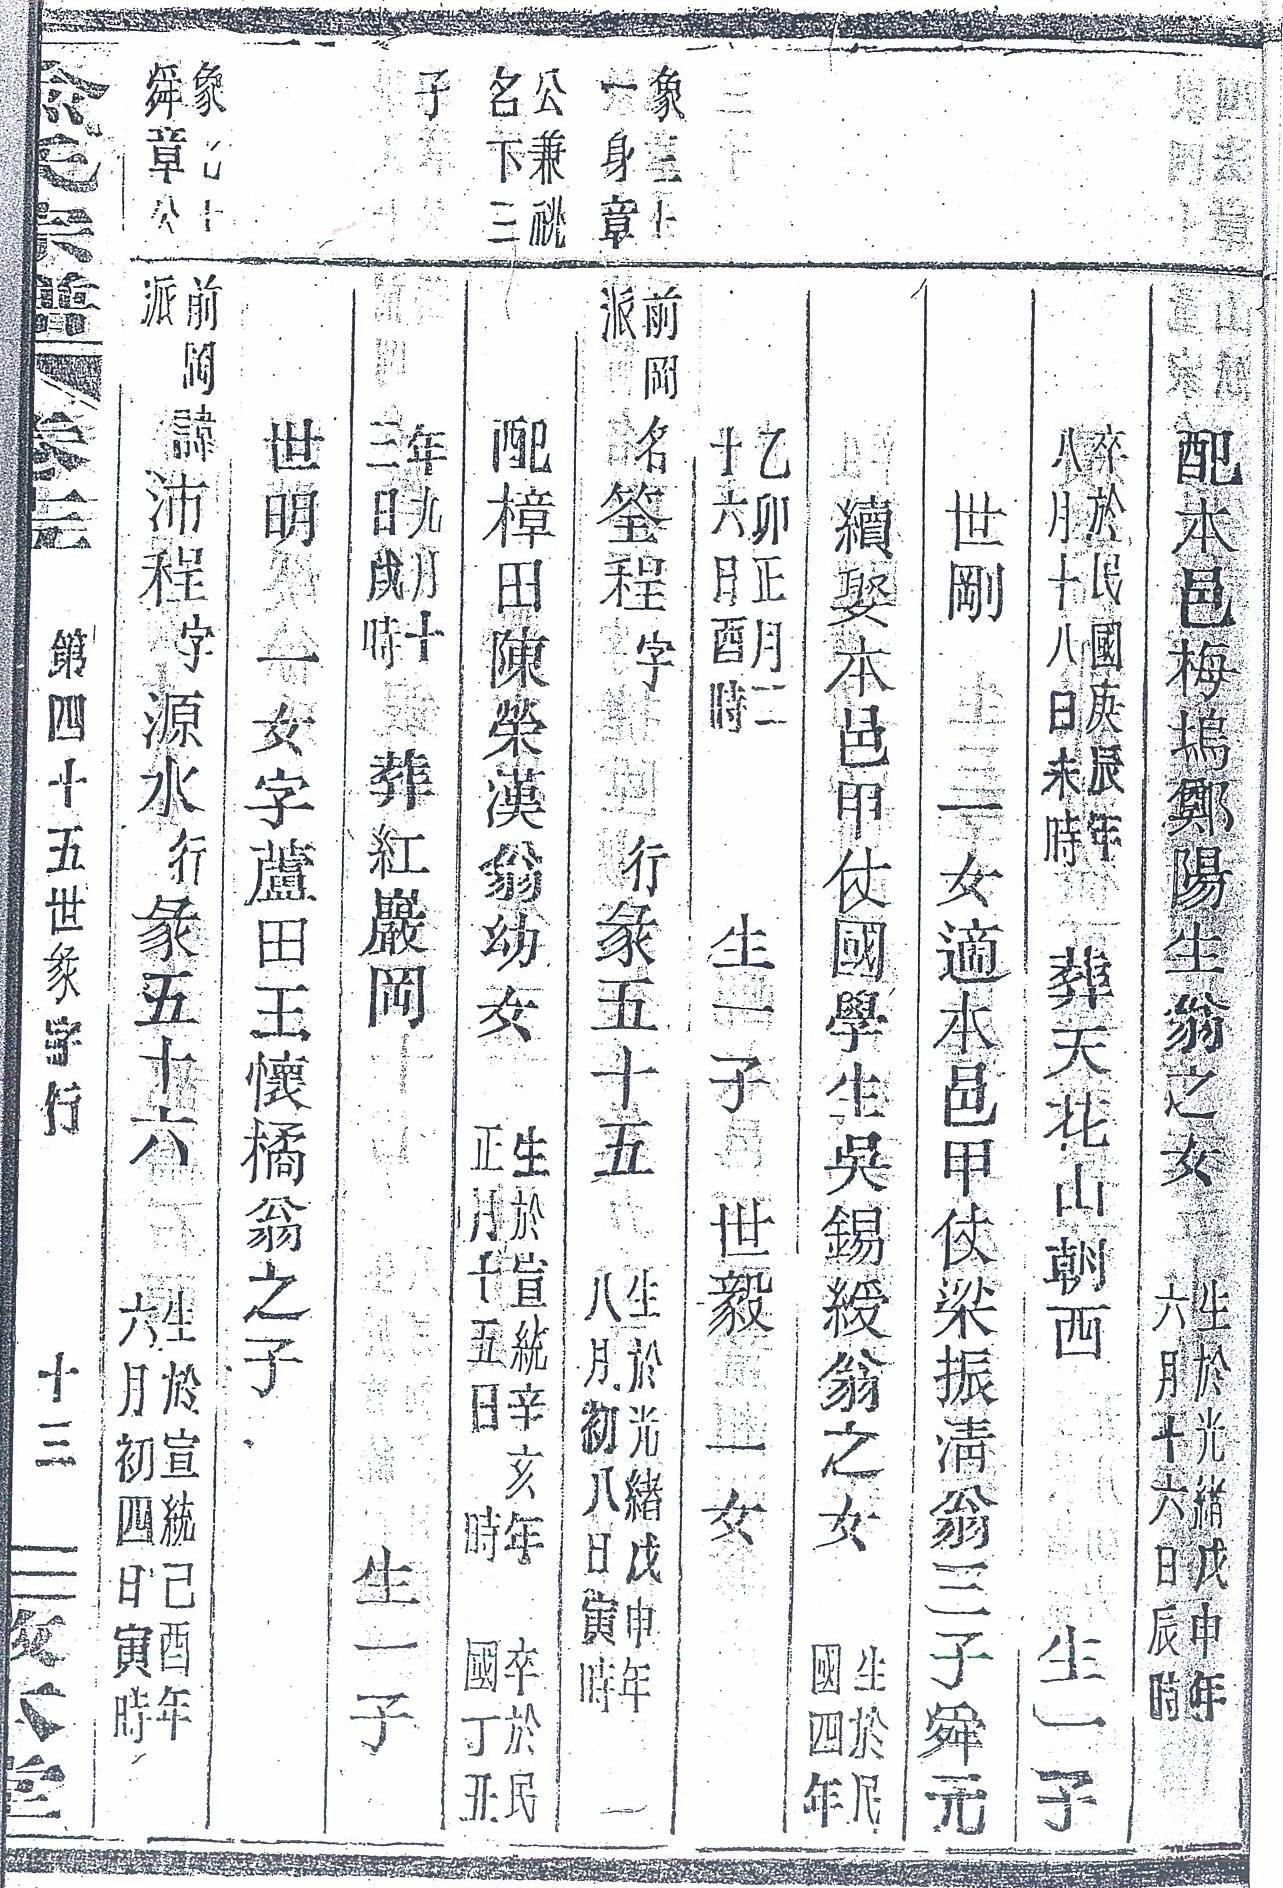 配本邑梅塢鄭陽生翁之女 生於光緒戊申年六月十六日辰時
卒於民國庚辰年八月十八日未時 葬天花山朝西 生一子
世剛 一女適本邑甲仗梁振清翁三子舜元
續娶本邑甲仗國學生吳錫綬翁之女 生於民國四年
乙卯正月二十六日酉時 生一子 世毅 一女
一身章
前岡派 名筌程 字 行彖五十五 生於光緒戊申年八月初八日寅時
公兼祧名下三
配樟田陳榮漢翁幼女 生於宣統辛亥年正月十五日 時 卒於民國丁丑
子
年九月十三日戌時 葬紅巖岡 生一子
世明 一女字蘆田王懷橘翁之子
舜章公
前岡派 諱沛程 字源水 行彖五十六 生於宣統己酉年六月初四日寅時
宗譜 卷 第四十五世彖字行 十三